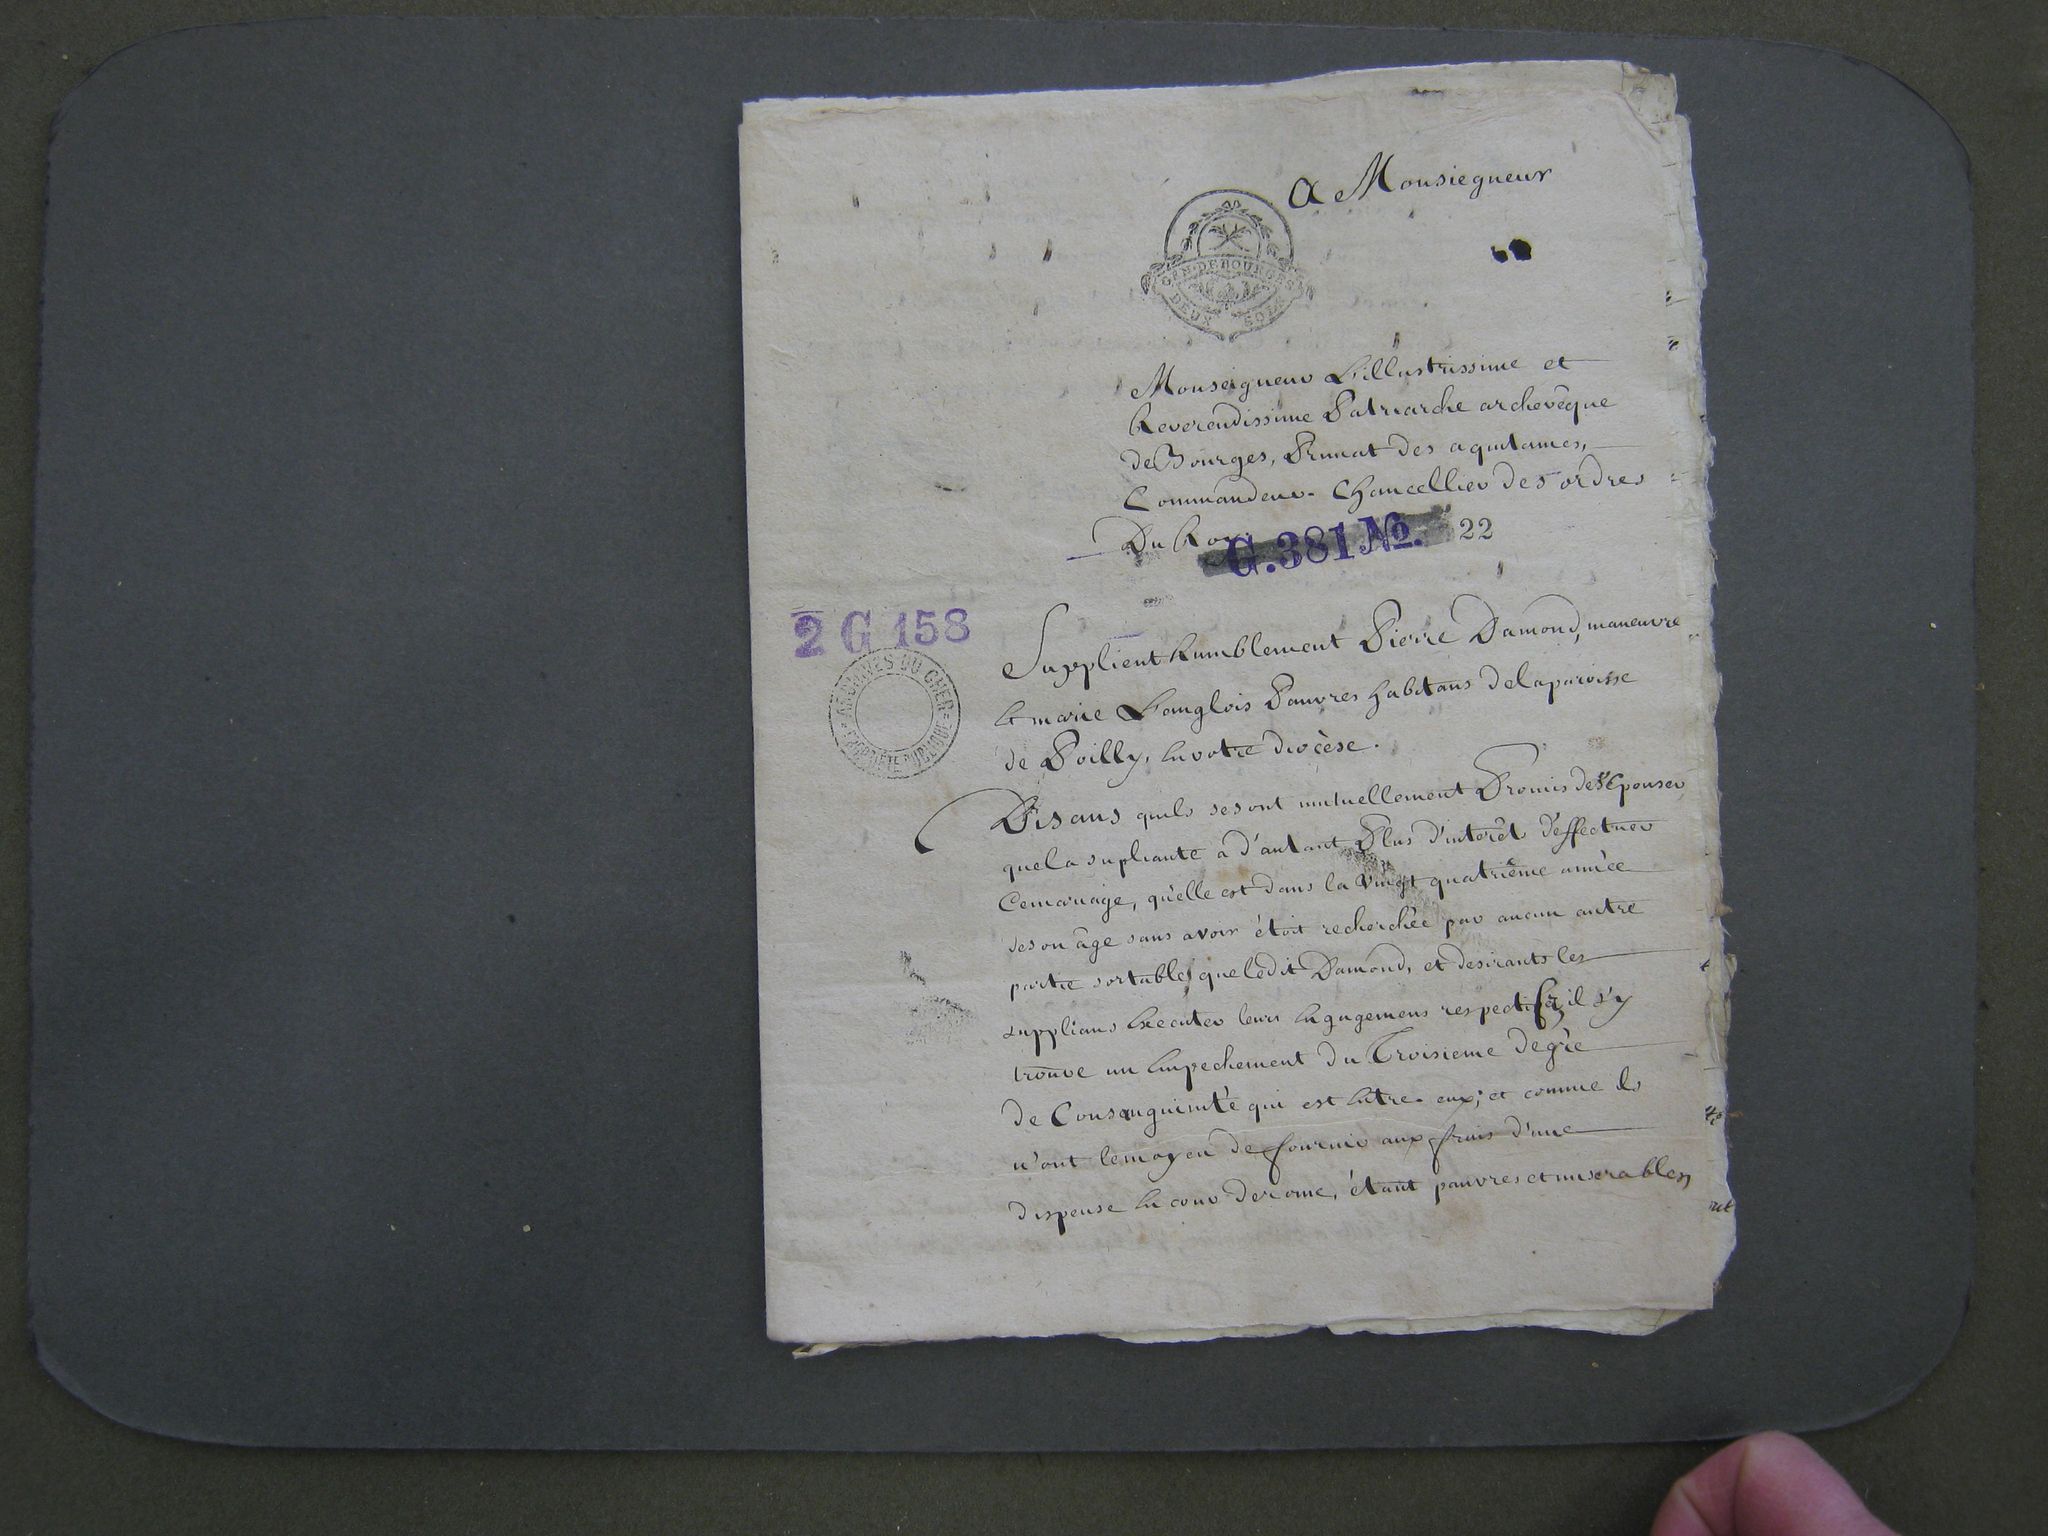 A Monsiegneur
GEN. DE BOURGES
DEUX SOLS
Monseigneur L'illustrissime et
Reverendissime Patriarche archevêque
de Bourges, Primat des aquitaines,
Commandeur-Chancellier des ordres
Du Roy.
G.381 No. 22
2 G 158
ARCHIVES DU CHER
PROPRIÉTÉ PUBLIQUE
Supplient humblement Pierre Damond, maneuvre
Et marie Langlois Pauvres habitans de la paroisse
de Poilly, En votre diocèse.
Disans quils se sont mutuellement Promis de s'Epouser,
que la supliante a d'autant Plus d'interêt d'effectuer
Ce mariage, qu'elle est dans la vingt quatriême année
de son âge sans avoir étoit recherchée par aucun autre
partie sortable que ledit Damond, et desirants les
supplians Executer leurs Engagemens respectifs, il s'y
trouve un Empechement du Troisieme degrè
de Consanguinitè qui est Entre-eux; et comme ils
n'ont le moyen de fournir aux frais d'une
dispense En cour de rome, étant pauvres et miserables,